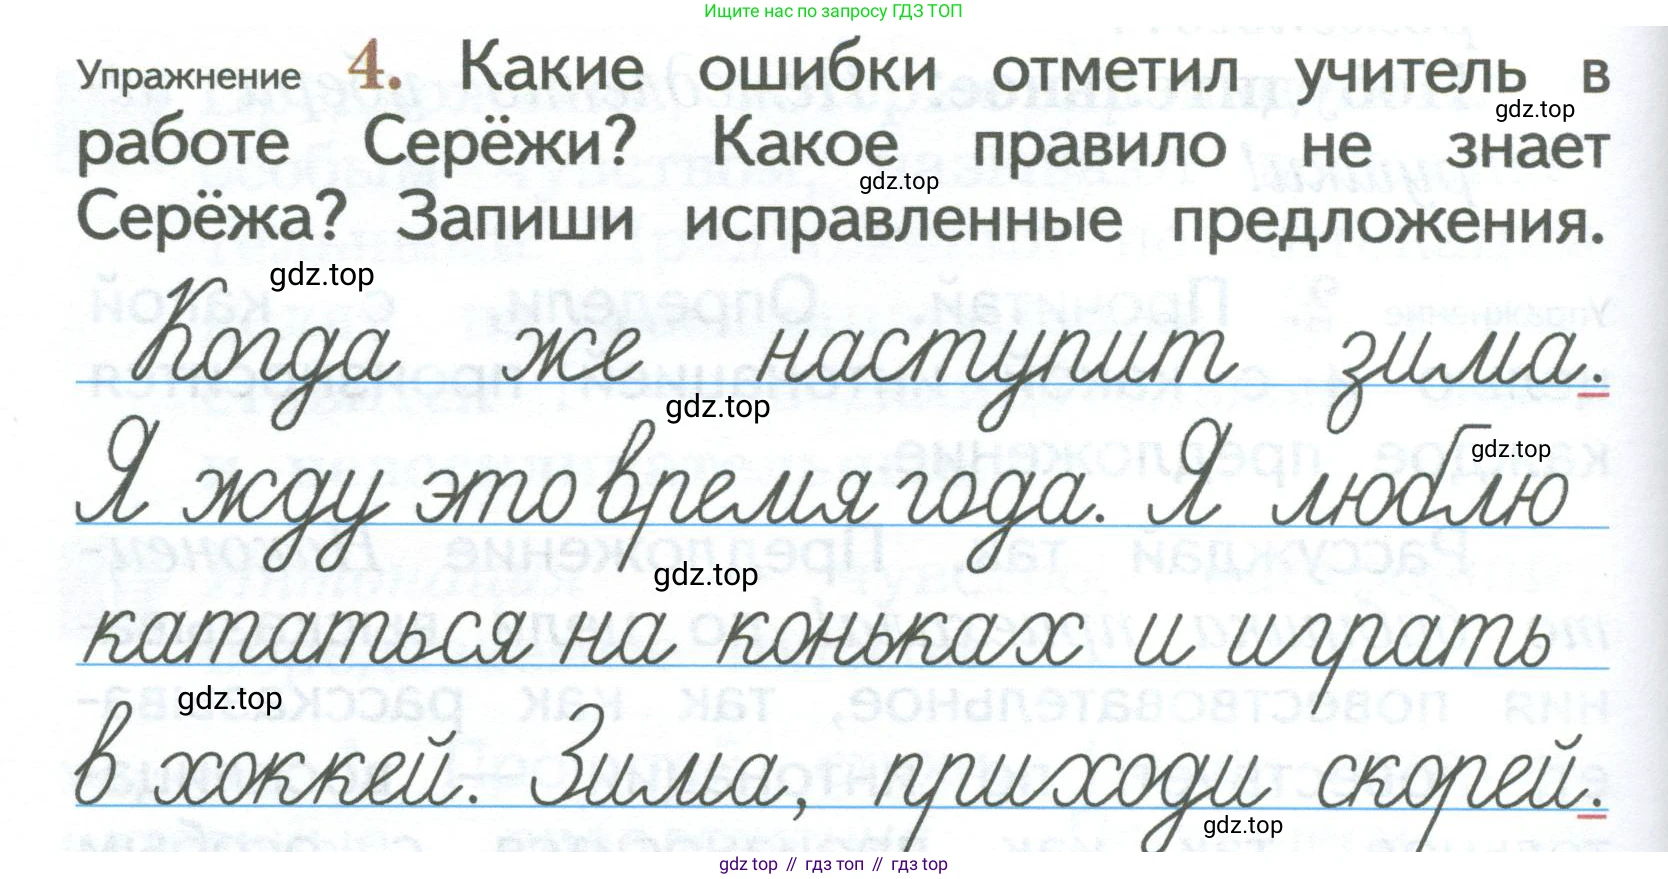 Ищите нас по запросу ГДЗ ТОП
Упражнение 4. Какие ошибки отметил учитель в
gdz.top
работе Серёжи? Какое правило не знает
gdz.top
Серёжа? Запиши исправленные предложения.
gdz.top
Когда же наступит зима.
gdz.top
Я жду это время года. Я люблю
gdz.top
gdz.top
кататься на коньках и играть
gdz.top
в хоккей. Зима, приходи скорей.
gdz.top
gdz top // гдз топ // гдз top